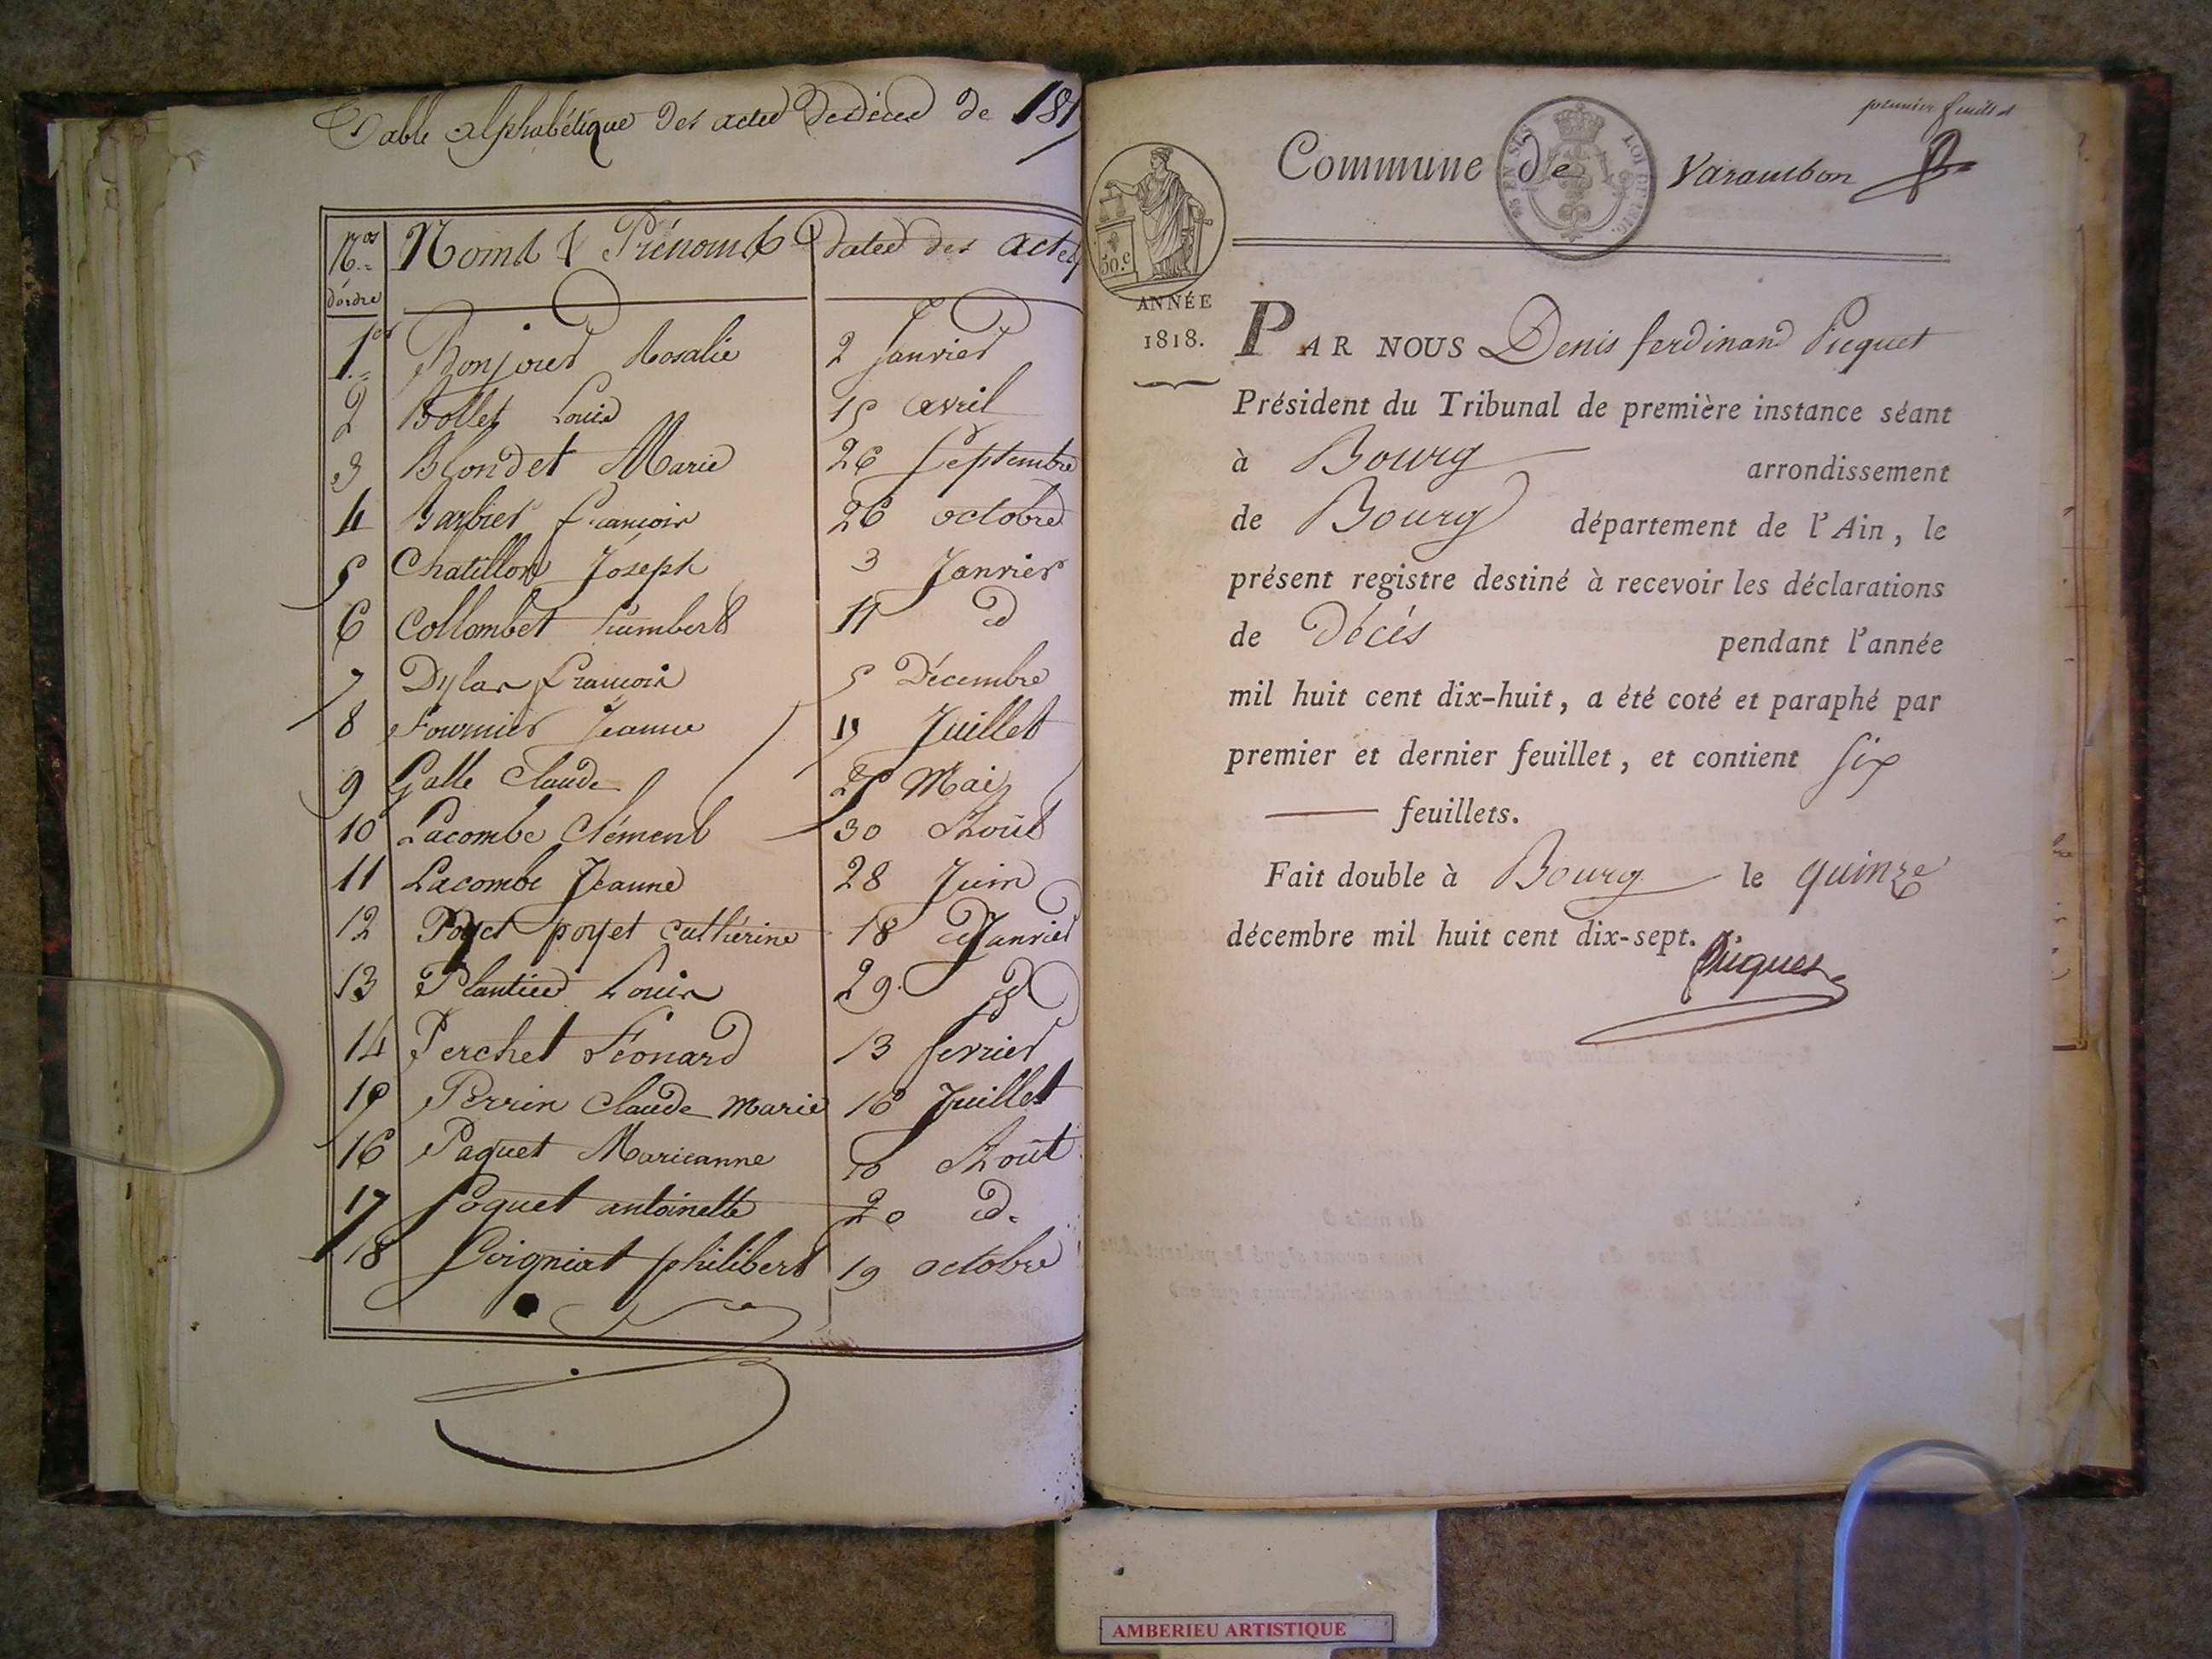 Table alphabétique des actes de décès de 181
Nos d'ordre Noms & Prénoms dates des actes
1er Bonjour Rosalie 2 Janvier
2 Bollet Louis 15 avril
3 Blondet Marie 26 Septembre
4 Barbier francois 26 octobre
5 Chatillon Joseph 3 Janvier
6 Collombet humbert 11 d
7 Dylas francois 5 Décembre
8 Fournier Jeanne 15 Juillet
9 Galle Claude 25 Mai
10 Lacombe Clément 30 Août
11 Lacombe Jeanne 28 Juin
12 Poyet poyet Cathérine 18 Janvier
13 Plantier Louis 29 d
14 Perchet Léonard 13 fevrier
15 Perrin Claude Marie 16 Juillet
16 Paquet Marieanne 10 Août
17 Poquet antoinette 20 d.
18 Soigniat philibert 19 octobre
premier feuillet
Commune de Varambon
50.c
ANNÉE
1818.
PAR NOUS Denis ferdinand Picquet
Président du Tribunal de première instance séant
à Bourg arrondissement
de Bourg département de l'Ain, le
présent registre destiné à recevoir les déclarations
de Décès pendant l'année
mil huit cent dix-huit, a été coté et paraphé par
premier et dernier feuillet, et contient six
feuillets.
Fait double à Bourg le quinze
décembre mil huit cent dix-sept.
Picquet
AMBERIEU ARTISTIQUE